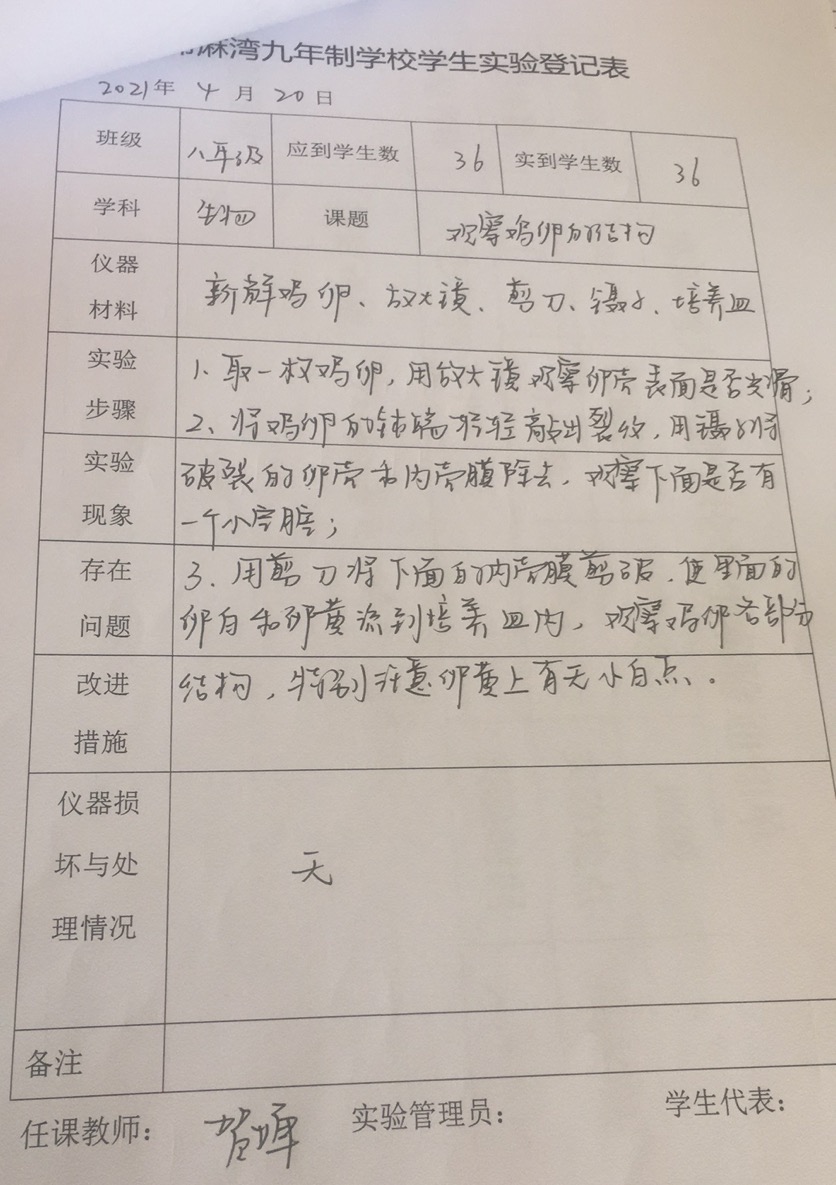 麻湾九年制学校学生实验登记表
2021年 4 月 20 日
班级 八年级 应到学生数 36 实到学生数 36
学科 生物 课题 观察鸡卵的结构
仪器材料 新鲜鸡卵、放大镜、剪刀、镊子、培养皿
实验 1、取一枚鸡卵,用放大镜观察卵壳表面是否光滑;
步骤 2、将鸡卵的钝端轻轻敲出裂纹,用镊子将
实验 破裂的卵壳和内壳膜除去,观察下面是否有
现象 一个小空腔;
存在 3、用剪刀将下面的内壳膜剪破,使里面的
问题 卵白和卵黄流到培养皿内,观察鸡卵各部分
改进 结构,特别注意卵黄上有无小白点。
措施
仪器损
坏与处 无
理情况
备注
任课教师: 贺 实验管理员: 学生代表: